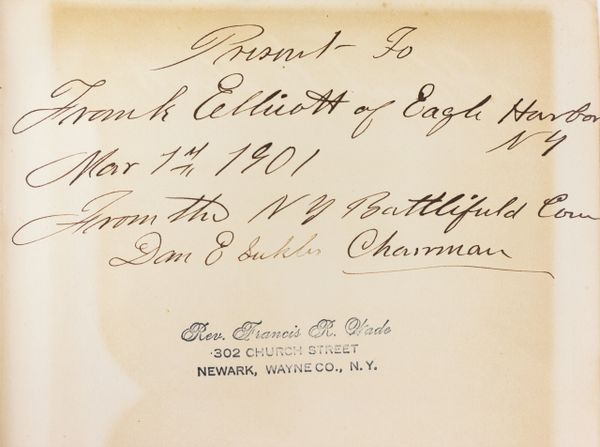 Present To
Frank Ellicott of Eagle Harbor
NY
Mar 1st 1901
From the NY Battlefield Com
Dan E Sickles Chairman
Rev. Francis R. Wade
302 CHURCH STREET
NEWARK, WAYNE CO., N.Y.